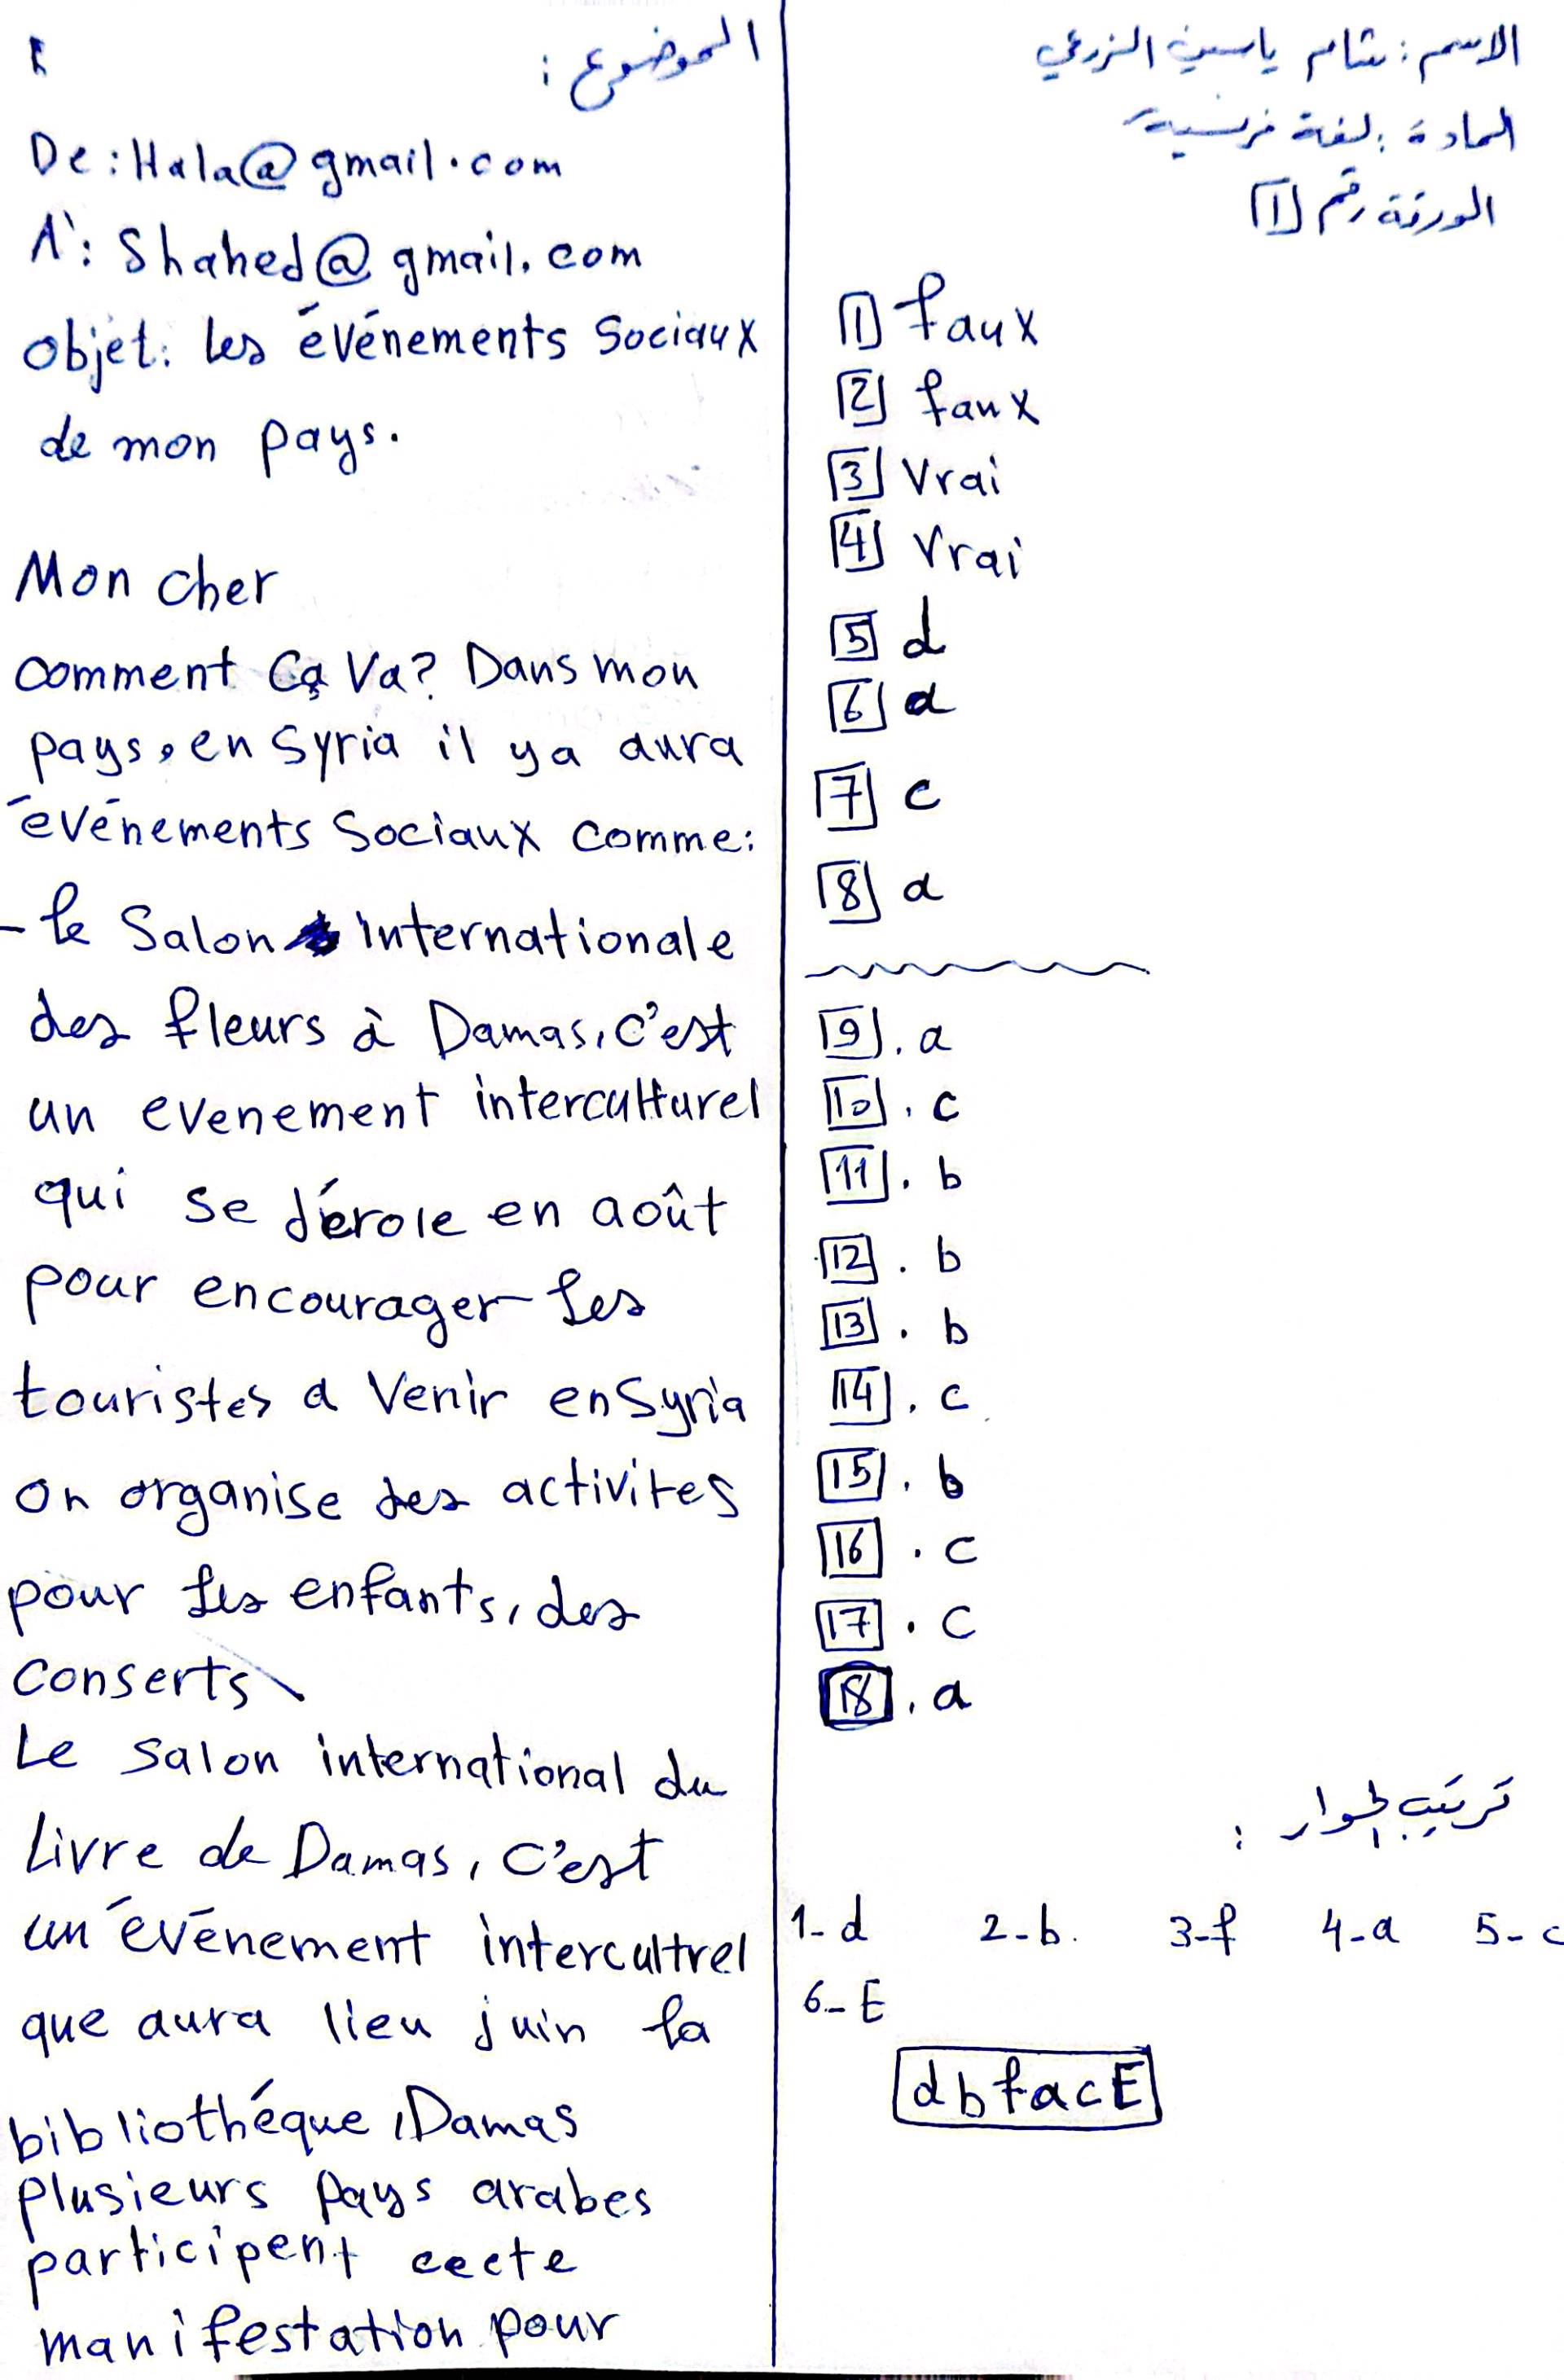 الاسم: شام ياسين الزرعي
المادة: لغة فرنسية
الورقة رقم [1]
[1] faux
[2] faux
[3] Vrai
[4] Vrai
[5] d
[6] a
[7] c
[8] a
[9]. a
[10]. c
[11]. b
[12]. b
[13]. b
[14]. c
[15]. b
[16]. c
[17]. c
[18]. a
ترتيب الحوار :
1-d 2-b. 3-f 4-a 5-c
6-E
dbfacE
الموضوع :
De: Hala@gmail.com
À: Shahed@gmail.com
objet: les événements Sociaux
de mon pays.
Mon cher
comment Ça Va? Dans mon
pays, en Syria il ya aura
événements Sociaux comme:
- le Salon internationale
des fleurs à Damas, c'est
un evenement interculturel
qui se dérole en août
pour encourager les
touristes a Venir en Syria
on organise des activites
pour les enfants, des
conserts
Le salon international du
Livre de Damas, c'est
un événement intercultrel
que aura lieu juin la
bibliothéque, Damas
plusieurs pays arabes
participent cecte
manifestation pour